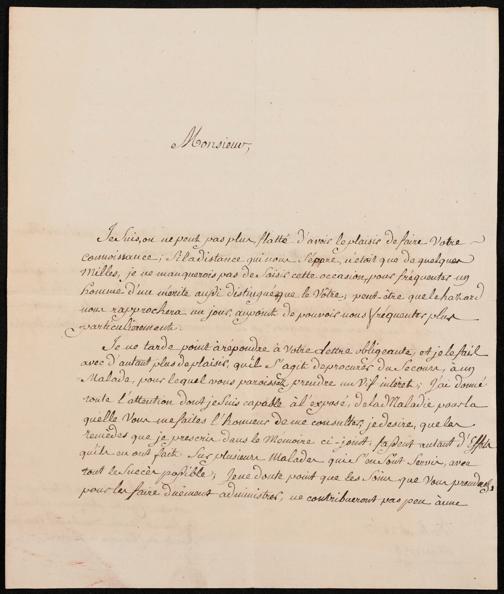 Monsieur,
Je suis, on ne peut pas plus flatté d'avoir le plaisir de faire Votre
connoissance; Si la distance qui nous Sépare, n'étoit que de quelques
Milles, je ne manquerois pas de Saisir cette occasion, pour fréquenter un
homme d'un mérite aussi distingué que le Vôtre, peut-être que le hazard
nous rapprochera un jour, au point de pouvoir nous fréquenter plus
particulièrement.
Je ne tarde point à répondre à Votre Lettre obligeante, et je le fait
avec d'autant plus de plaisir, qu'il S'agit de procurer du Secours, à un
Malade, pour lequel vous paroissez prendre un Vif interet; J'ai donné
toute l'attention dont je Suis capable à l'exposé, de la Maladie pour la
quelle Vous me faites l'honneur de me consulter, je desire, que les
remedes que je prescris dans le Mémoire ci-joint, fassent autant d'Effets
qu'ils en ont fait Sur plusieurs Malades qui S'en Sont Servis, avec
tout le Succès possible; Je ne doute point que les Soins que Vous prendrez,
pour les faire duëment administrer, ne contribueront pas peu à une